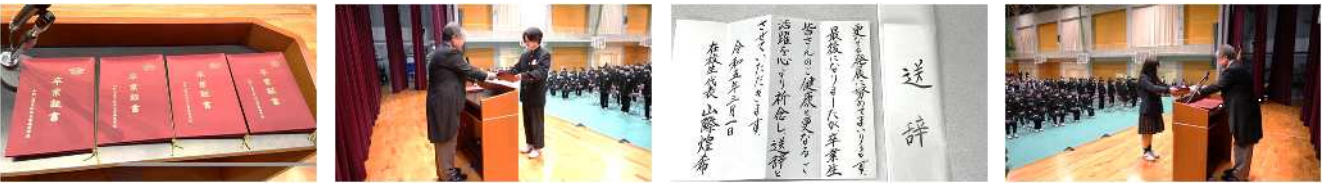 卒業証書
卒業証書
卒業証書
卒業証書
送辞
更なる発展に努めてまいります。
最後になりましたが卒業生
皆さんのご健康と更なるご
活躍を心より祈念し、送辞と
させていただきます。
令和五年三月一日
在校生代表